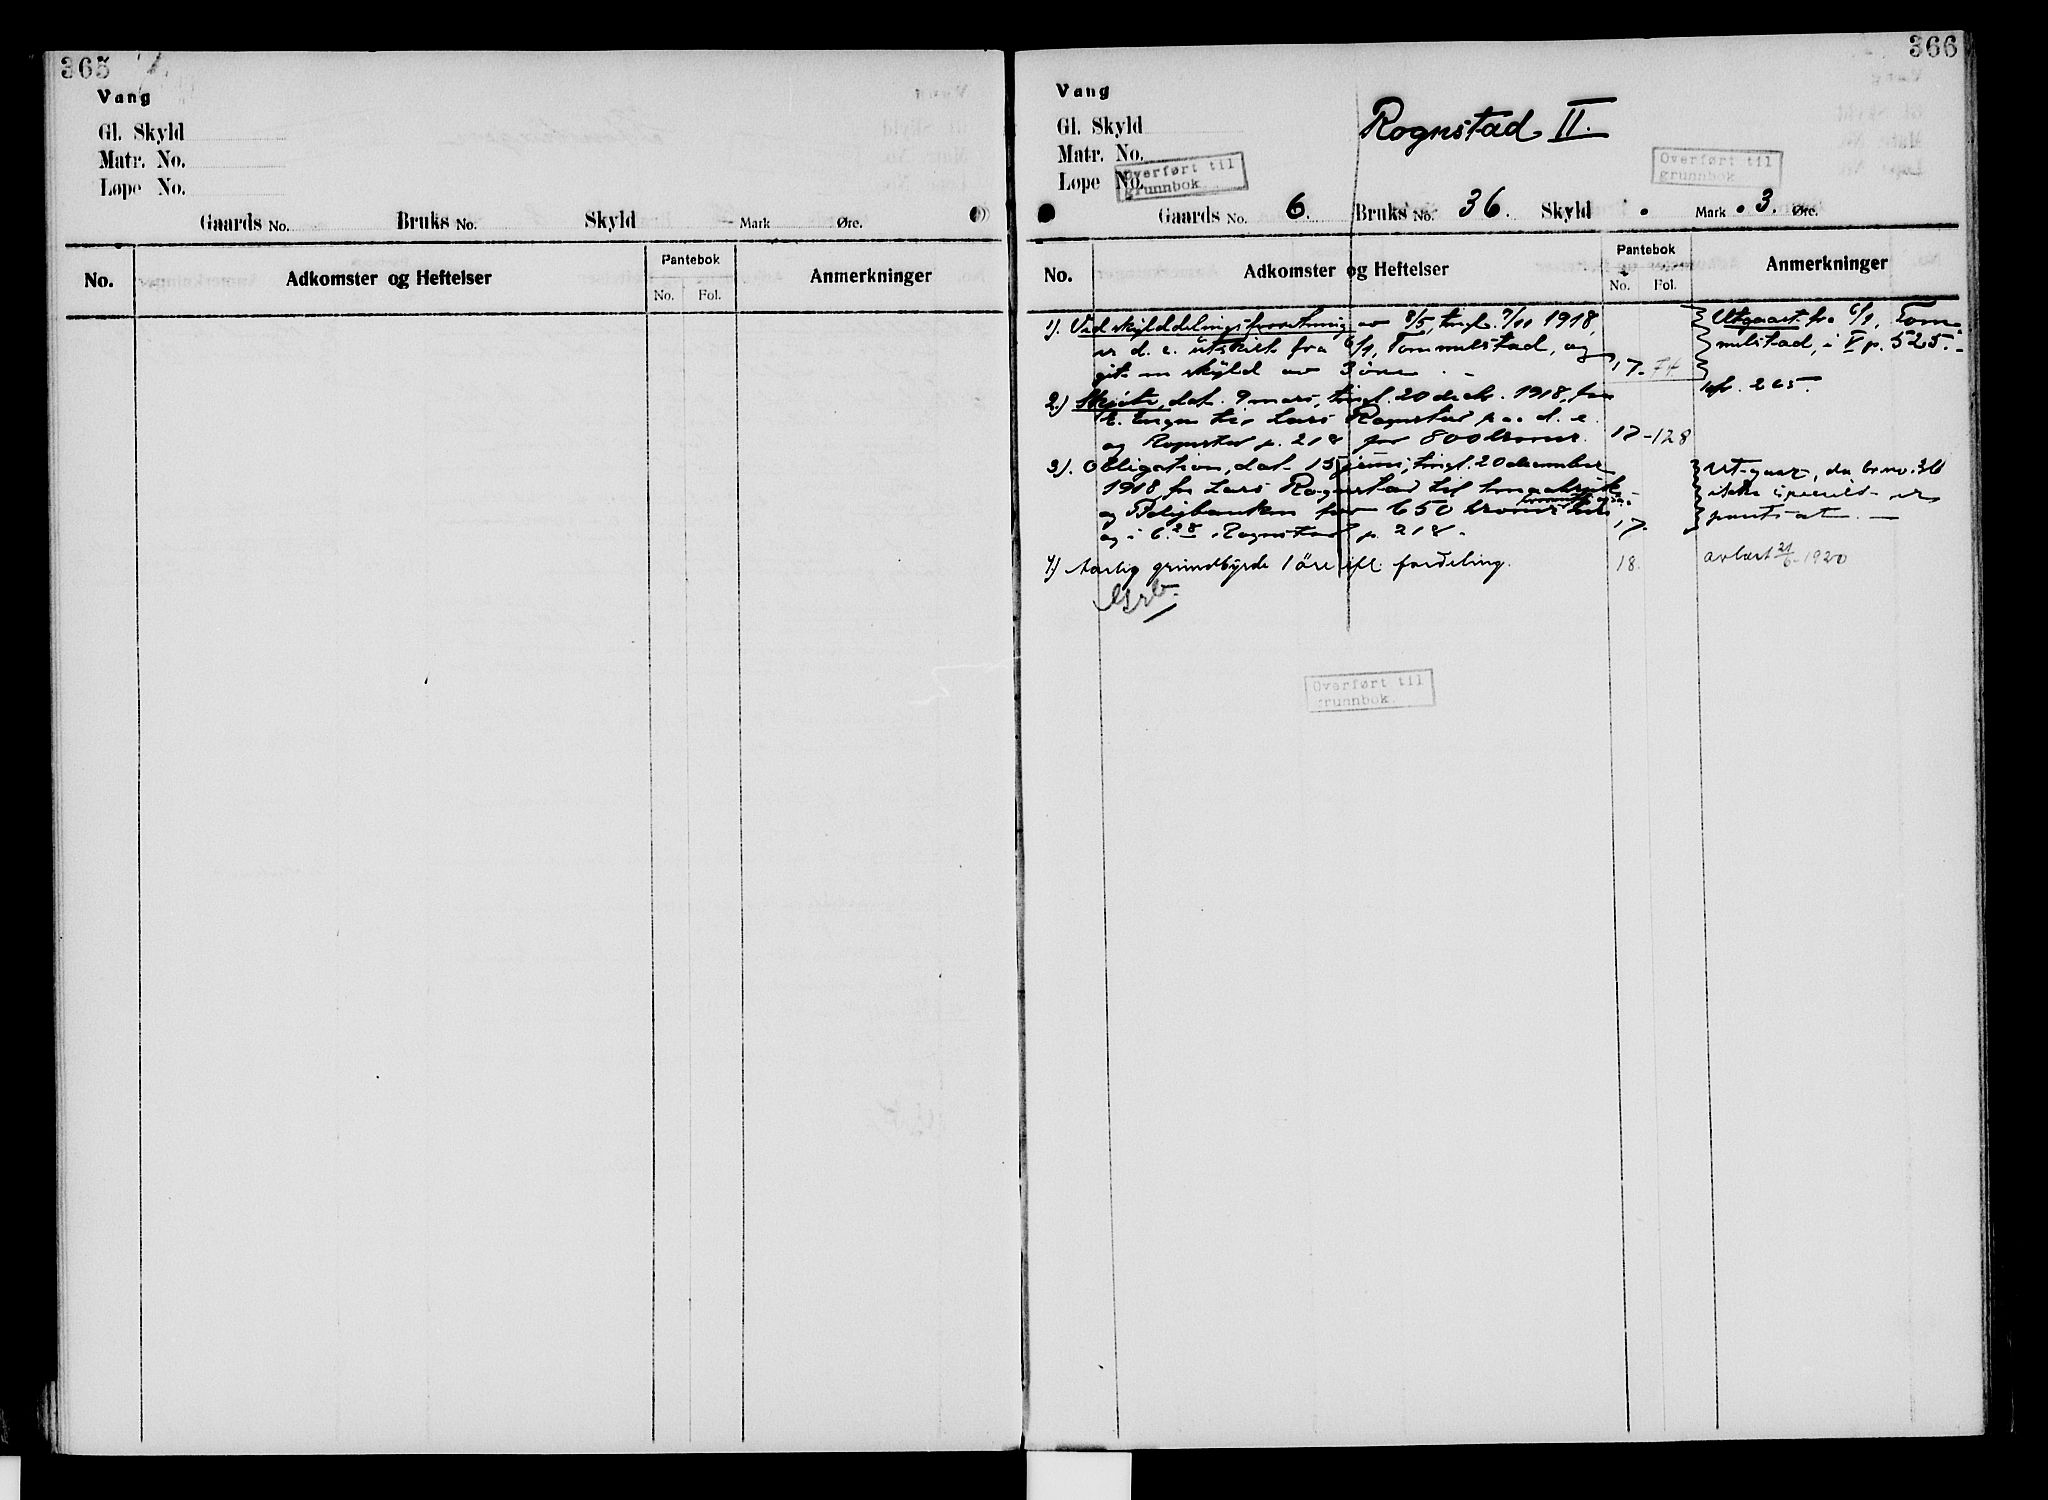 365
Vang
Gl. Skyld
Matr. No.
Løpe No.
Gaards No. Bruks No. Skyld Mark Øre.
No. Adkomster og Heftelser Pantebok Anmerkninger
No. Fol.
366
Vang
Gl. Skyld
Rognstad II.
Matr. No.
Løpe No.
Overført til
grunnbok
Overført til
grunnbok
Gaards No. 6. Bruks No. 36. Skyld . Mark . 3. Øre.
No. Adkomster og Heftelser Pantebok Anmerkninger
No. Fol.
1). Ved skylddelingsforretning av 8/5, tingl. 7/11 1918,
er d. e. utskilt fra 6/1, Tommelstad, og
git en skyld av 3 øre. 17-74
Utgaaet fra 6/1, Tom-
melstad, i V p. 525.
jfr. 265.
2.) Skjøte, dat. 9 mars, tingl. 20 decbr. 1918, fra
til Lars Rognstad paa d. e.
og Rognstad p. 218 for 800 kroner. 17-128
3). Obligation, dat. 15 juni, tingl. 20 december
1918, fra Lars Rognstad til
og for 650 kroner
og i 6.28 Rognstad p. 218. 17.
Utgaar, da br.no. 36
ikke specielt er
pantsat.
4) Aarlig grundbyrde 1 øre ifl. fordeling. 18.
avløst 21/6-1920
Overført til
grunnbok.